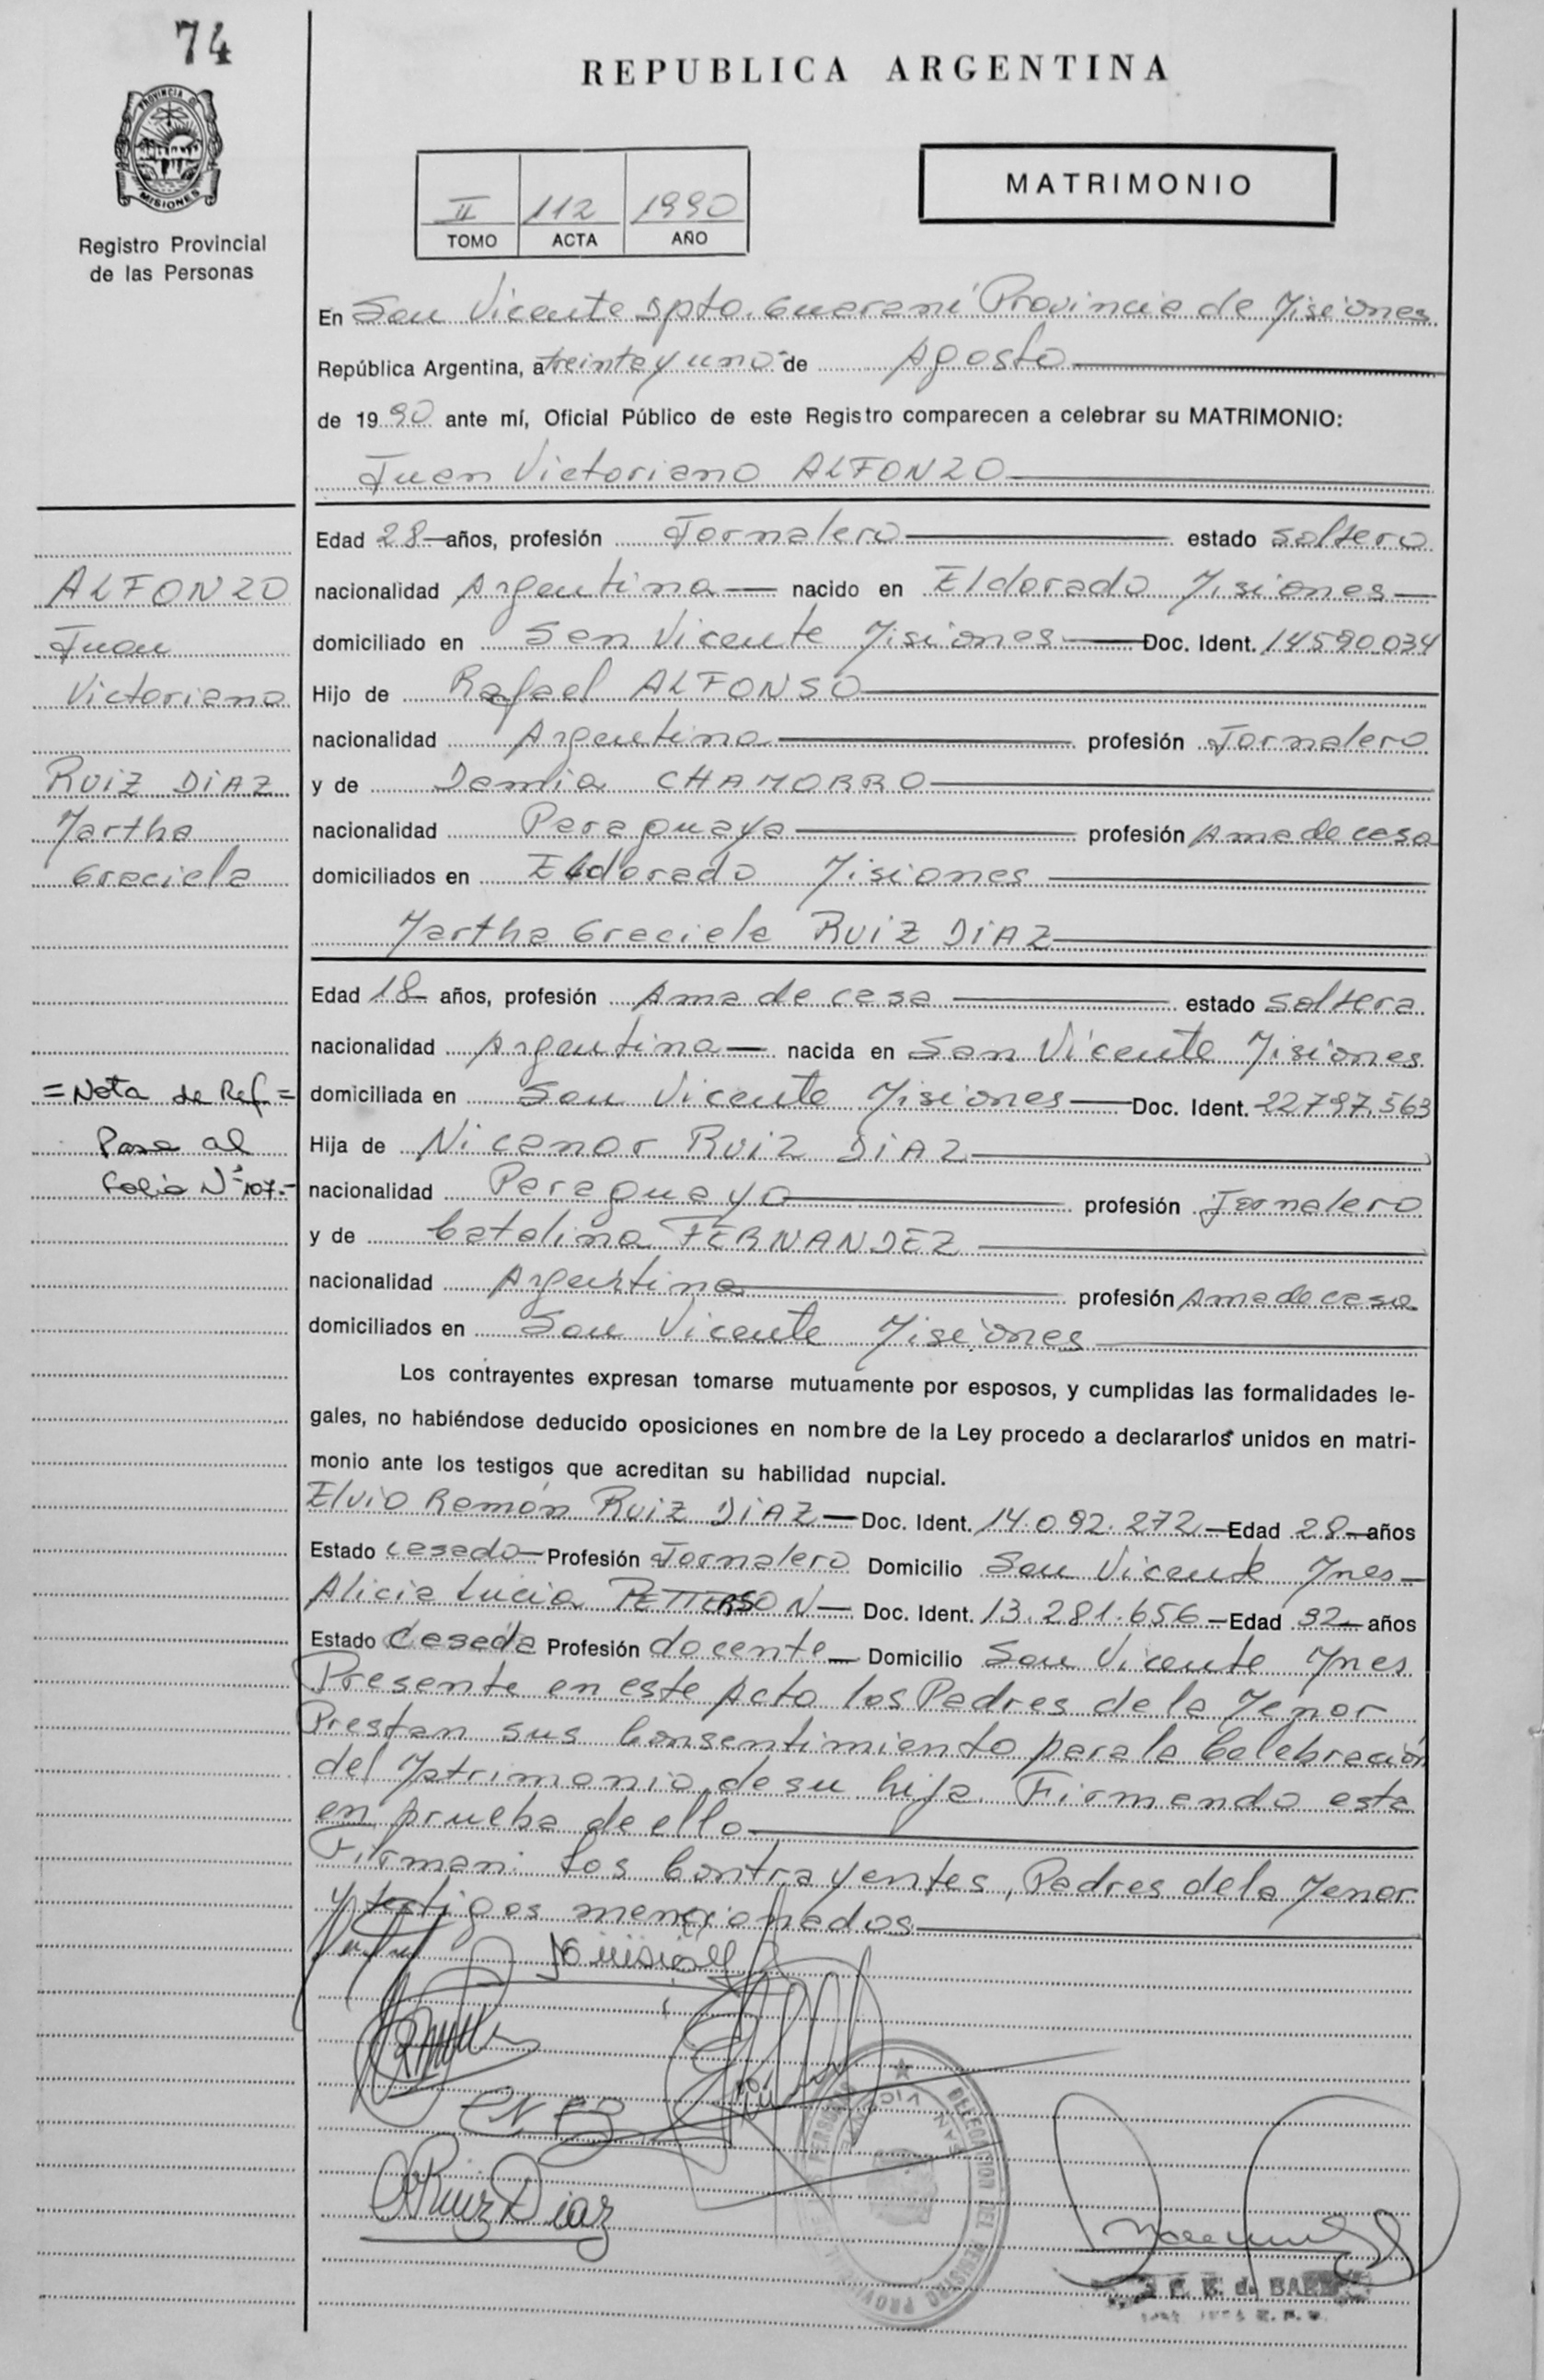 74
REPUBLICA ARGENTINA
PROVINCIA DE
MISIONES
Registro Provincial
de las Personas
II 112 1990
TOMO ACTA AÑO
MATRIMONIO
En San Vicente Dpto. Guaraní Provincia de Misiones
República Argentina, a treinta y uno de Agosto
de 1990 ante mí, Oficial Público de este Registro comparecen a celebrar su MATRIMONIO:
Juan Victoriano ALFONZO
Edad 28 años, profesión Jornalero estado soltero
ALFONZO
nacionalidad Argentina nacido en Eldorado Misiones
Juan
domiciliado en San Vicente Misiones Doc. Ident. 14590034
Victoriano
Hijo de Rafael ALFONSO
nacionalidad Argentina profesión Jornalero
RUIZ DIAZ
y de Demia CHAMORRO
Martha
nacionalidad Paraguaya profesión Ama de casa
Graciela
domiciliados en Eldorado Misiones
Martha Graciela RUIZ DIAZ
Edad 18 años, profesión Ama de casa estado soltera
nacionalidad Argentina nacida en San Vicente Misiones
=Nota de Ref.=
domiciliada en San Vicente Misiones Doc. Ident. 22797.563
Pasa al
Hija de Nicanor RUIZ DIAZ
folio Nº 107.-
nacionalidad Paraguayo profesión Jornalero
y de Catalina FERNANDEZ
nacionalidad Argentina profesión Ama de casa
domiciliados en San Vicente Misiones
Los contrayentes expresan tomarse mutuamente por esposos, y cumplidas las formalidades le-
gales, no habiéndose deducido oposiciones en nombre de la Ley procedo a declararlos unidos en matri-
monio ante los testigos que acreditan su habilidad nupcial.
Elvio Ramón RUIZ DIAZ Doc. Ident. 14.092.272 Edad 28 años
Estado casado Profesión Jornalero Domicilio San Vicente Mnes
Alicia Lucia PETTERSON Doc. Ident. 13.281.656 Edad 32 años
Estado Casada Profesión docente Domicilio San Vicente Mnes
Presente en este Acto los Padres de la Menor
Prestan sus Consentimiento para la Celebración
del Matrimonio de su hija. Firmando esta
en prueba de ello
Firman: Los Contrayentes, Padres de la Menor
y testigos mencionados
Ruiz Diaz
DELEGACION DEL REGISTRO
SAN VICENTE